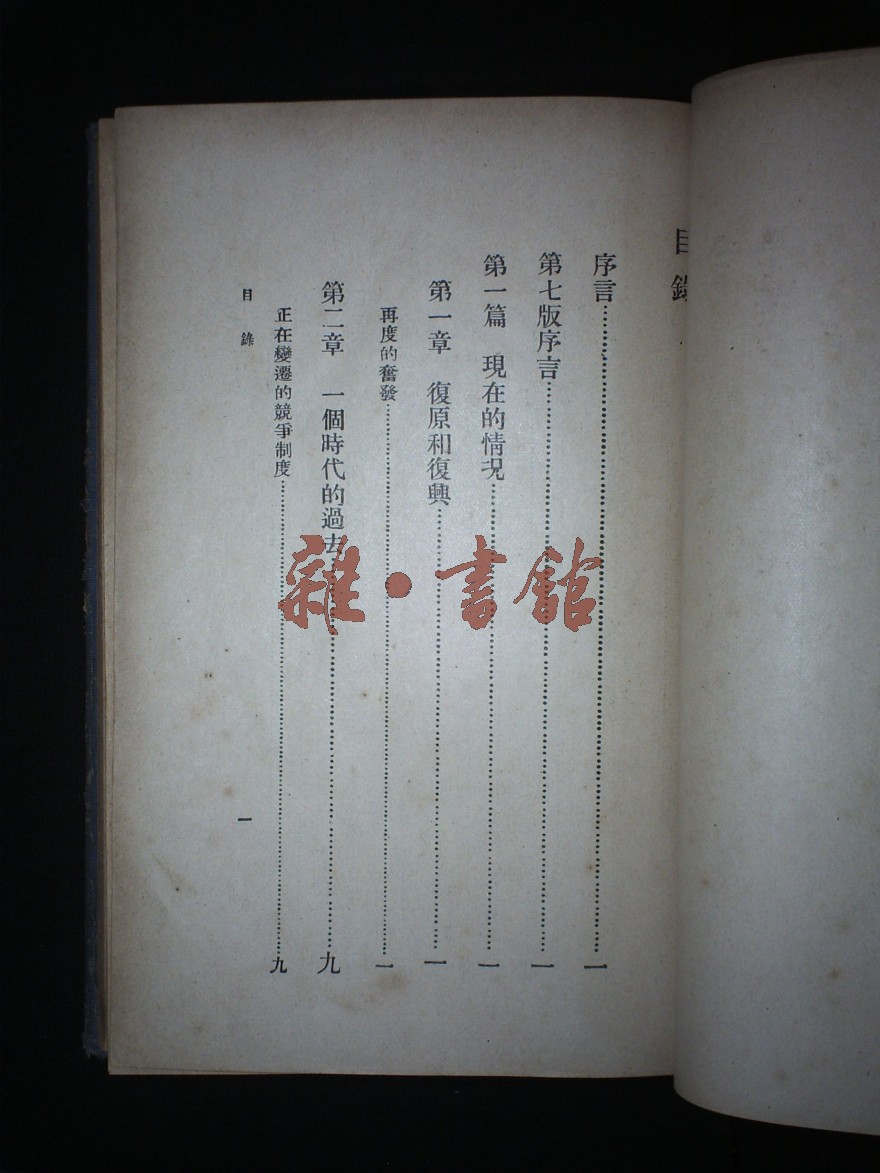 目錄
序言……一
第七版序言……一
第一篇　現在的情况……一
第一章　復原和復興……一
再度的奮發……一
第二章　一個時代的過去……九
正在變遷的競爭制度……九
目錄　一
雜·書館